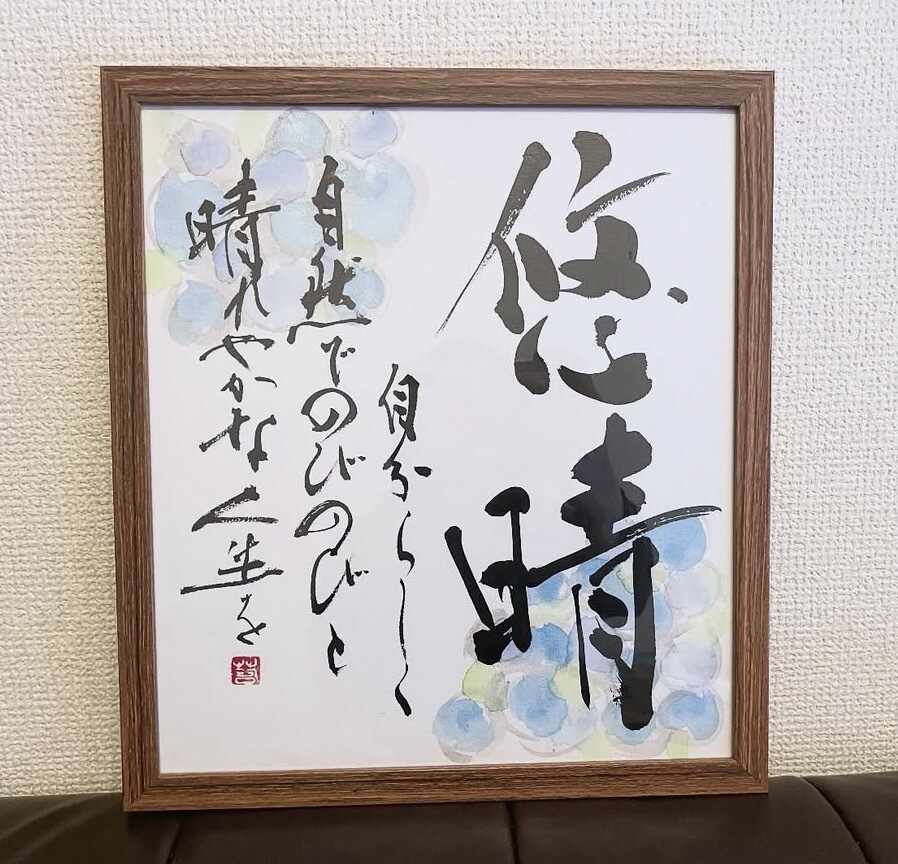 悠晴
自分らしく
自然でのびのびと
晴れやかな人生を